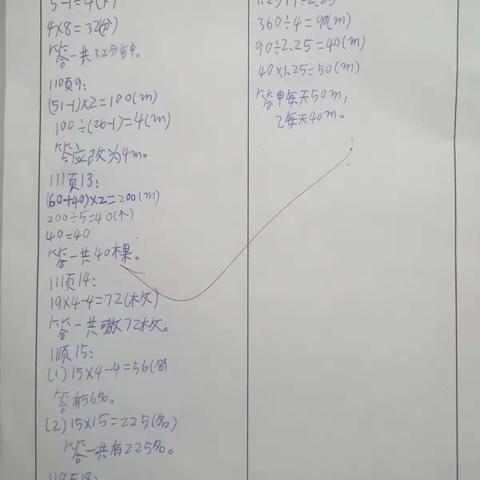 5-1=4(个)
4×8=32(分)
答一共32分钟。
110页9:
(51-1)×2=100(m)
100÷(26-1)=4(m)
答应改为4m。
111页13:
(60+40)×2=200(m)
200÷5=40(个)
40=40
答一共40棵。
111页14:
19×4-4=72(枚)
答一共可放72枚。
111页15:
(1)15×4-4=56(名)
答有56名。
(2)15×15=225(名)
答一共有225名。
1.25+1=2.25
360÷4=90(m)
90÷2.25=40(m)
40×1.25=50(m)
答甲每天50m,
乙每天40m。